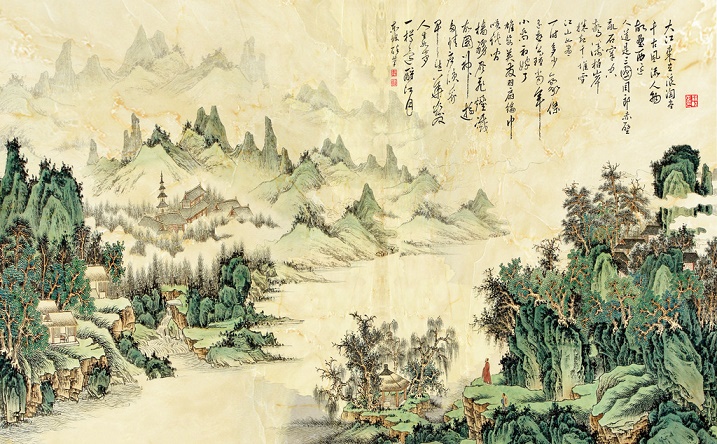 大江東去浪淘盡
千古風流人物
故壘西邊
人道是三國周郎赤壁
亂石穿空
驚濤拍岸
捲起千堆雪
江山如畫
一時多少豪傑
遙想公瑾當年
小喬初嫁了
雄姿英發羽扇綸巾
談笑間
檣櫓灰飛煙滅
故國神遊
多情應笑我
早生華發
人生如夢
一樽還酹江月